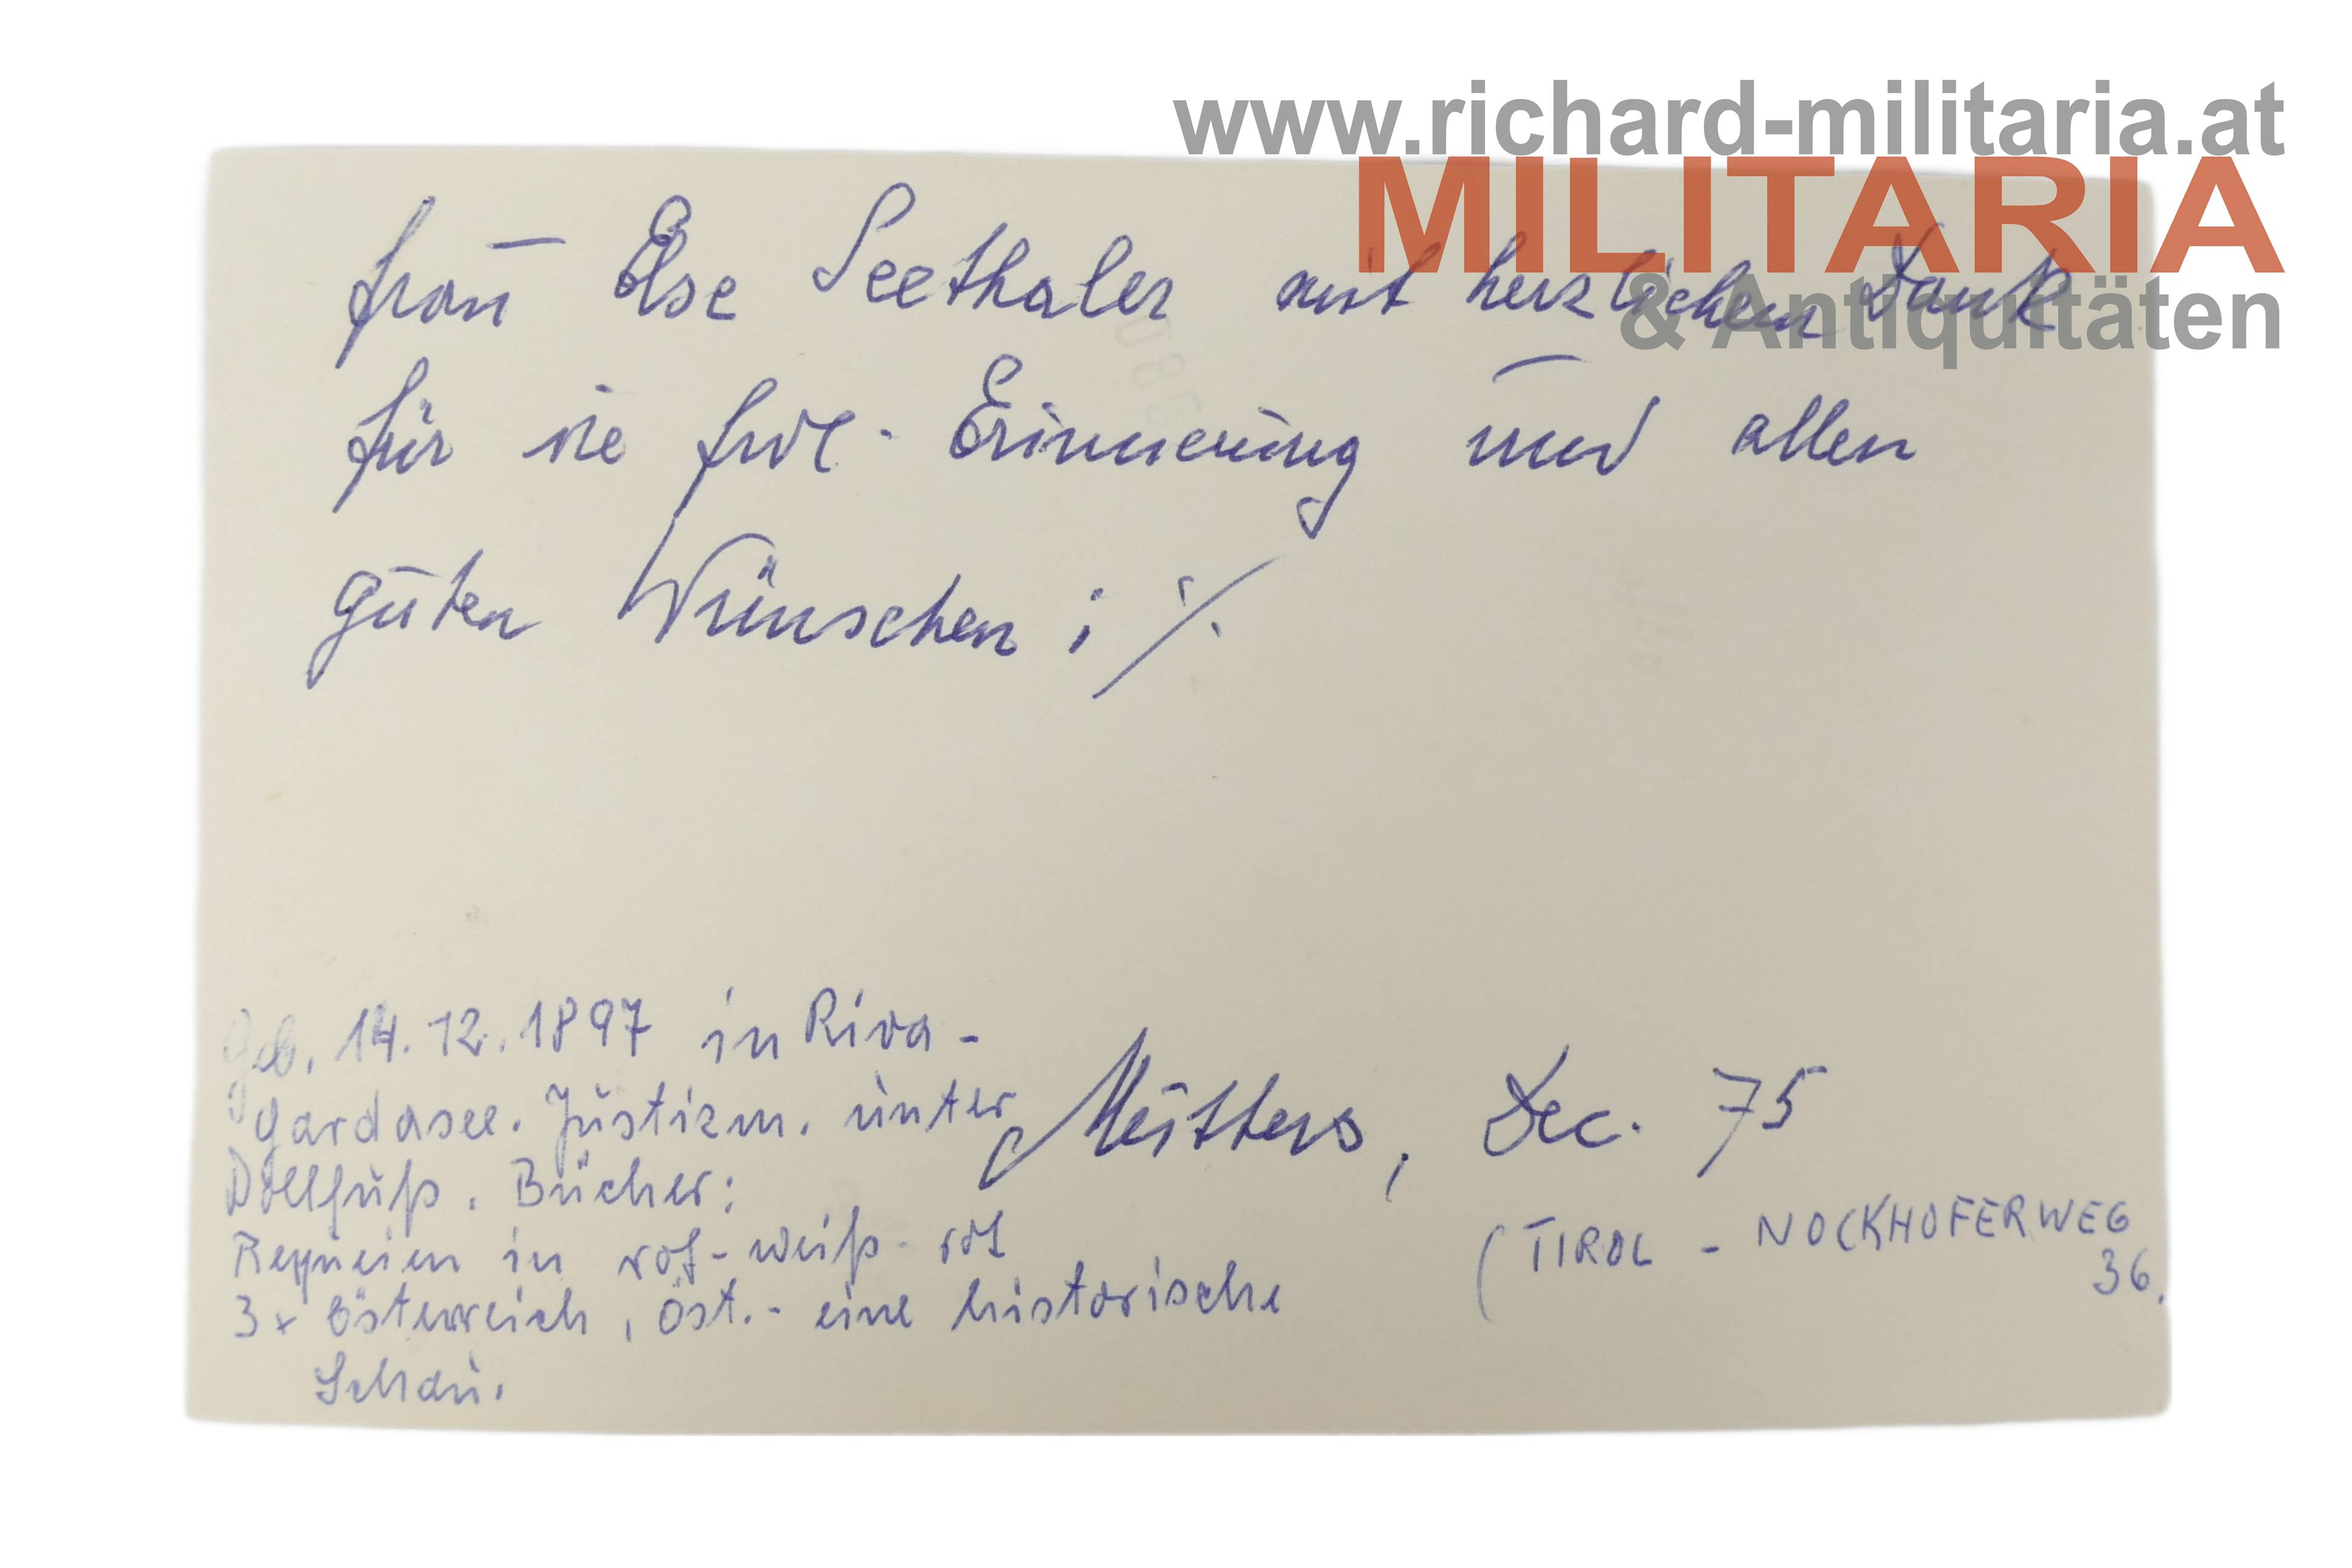 www.richard-militaria.at
MILITARIA
& Antiquitäten
Frau Else Seethaler mit herzlichem Dank
für die frdl. Erinnerung und allen
guten Wünschen i ./.
geb. 14.12.1897 in Riva-
Gardasee. Justizm. unter
Dollfuß. Bücher:
Requiem in rot-weiß-rot
3x Österreich, Öst.- eine historische
Schau.
Mutters, Dec. 75
(TIROL - NOCKHOFERWEG
36.